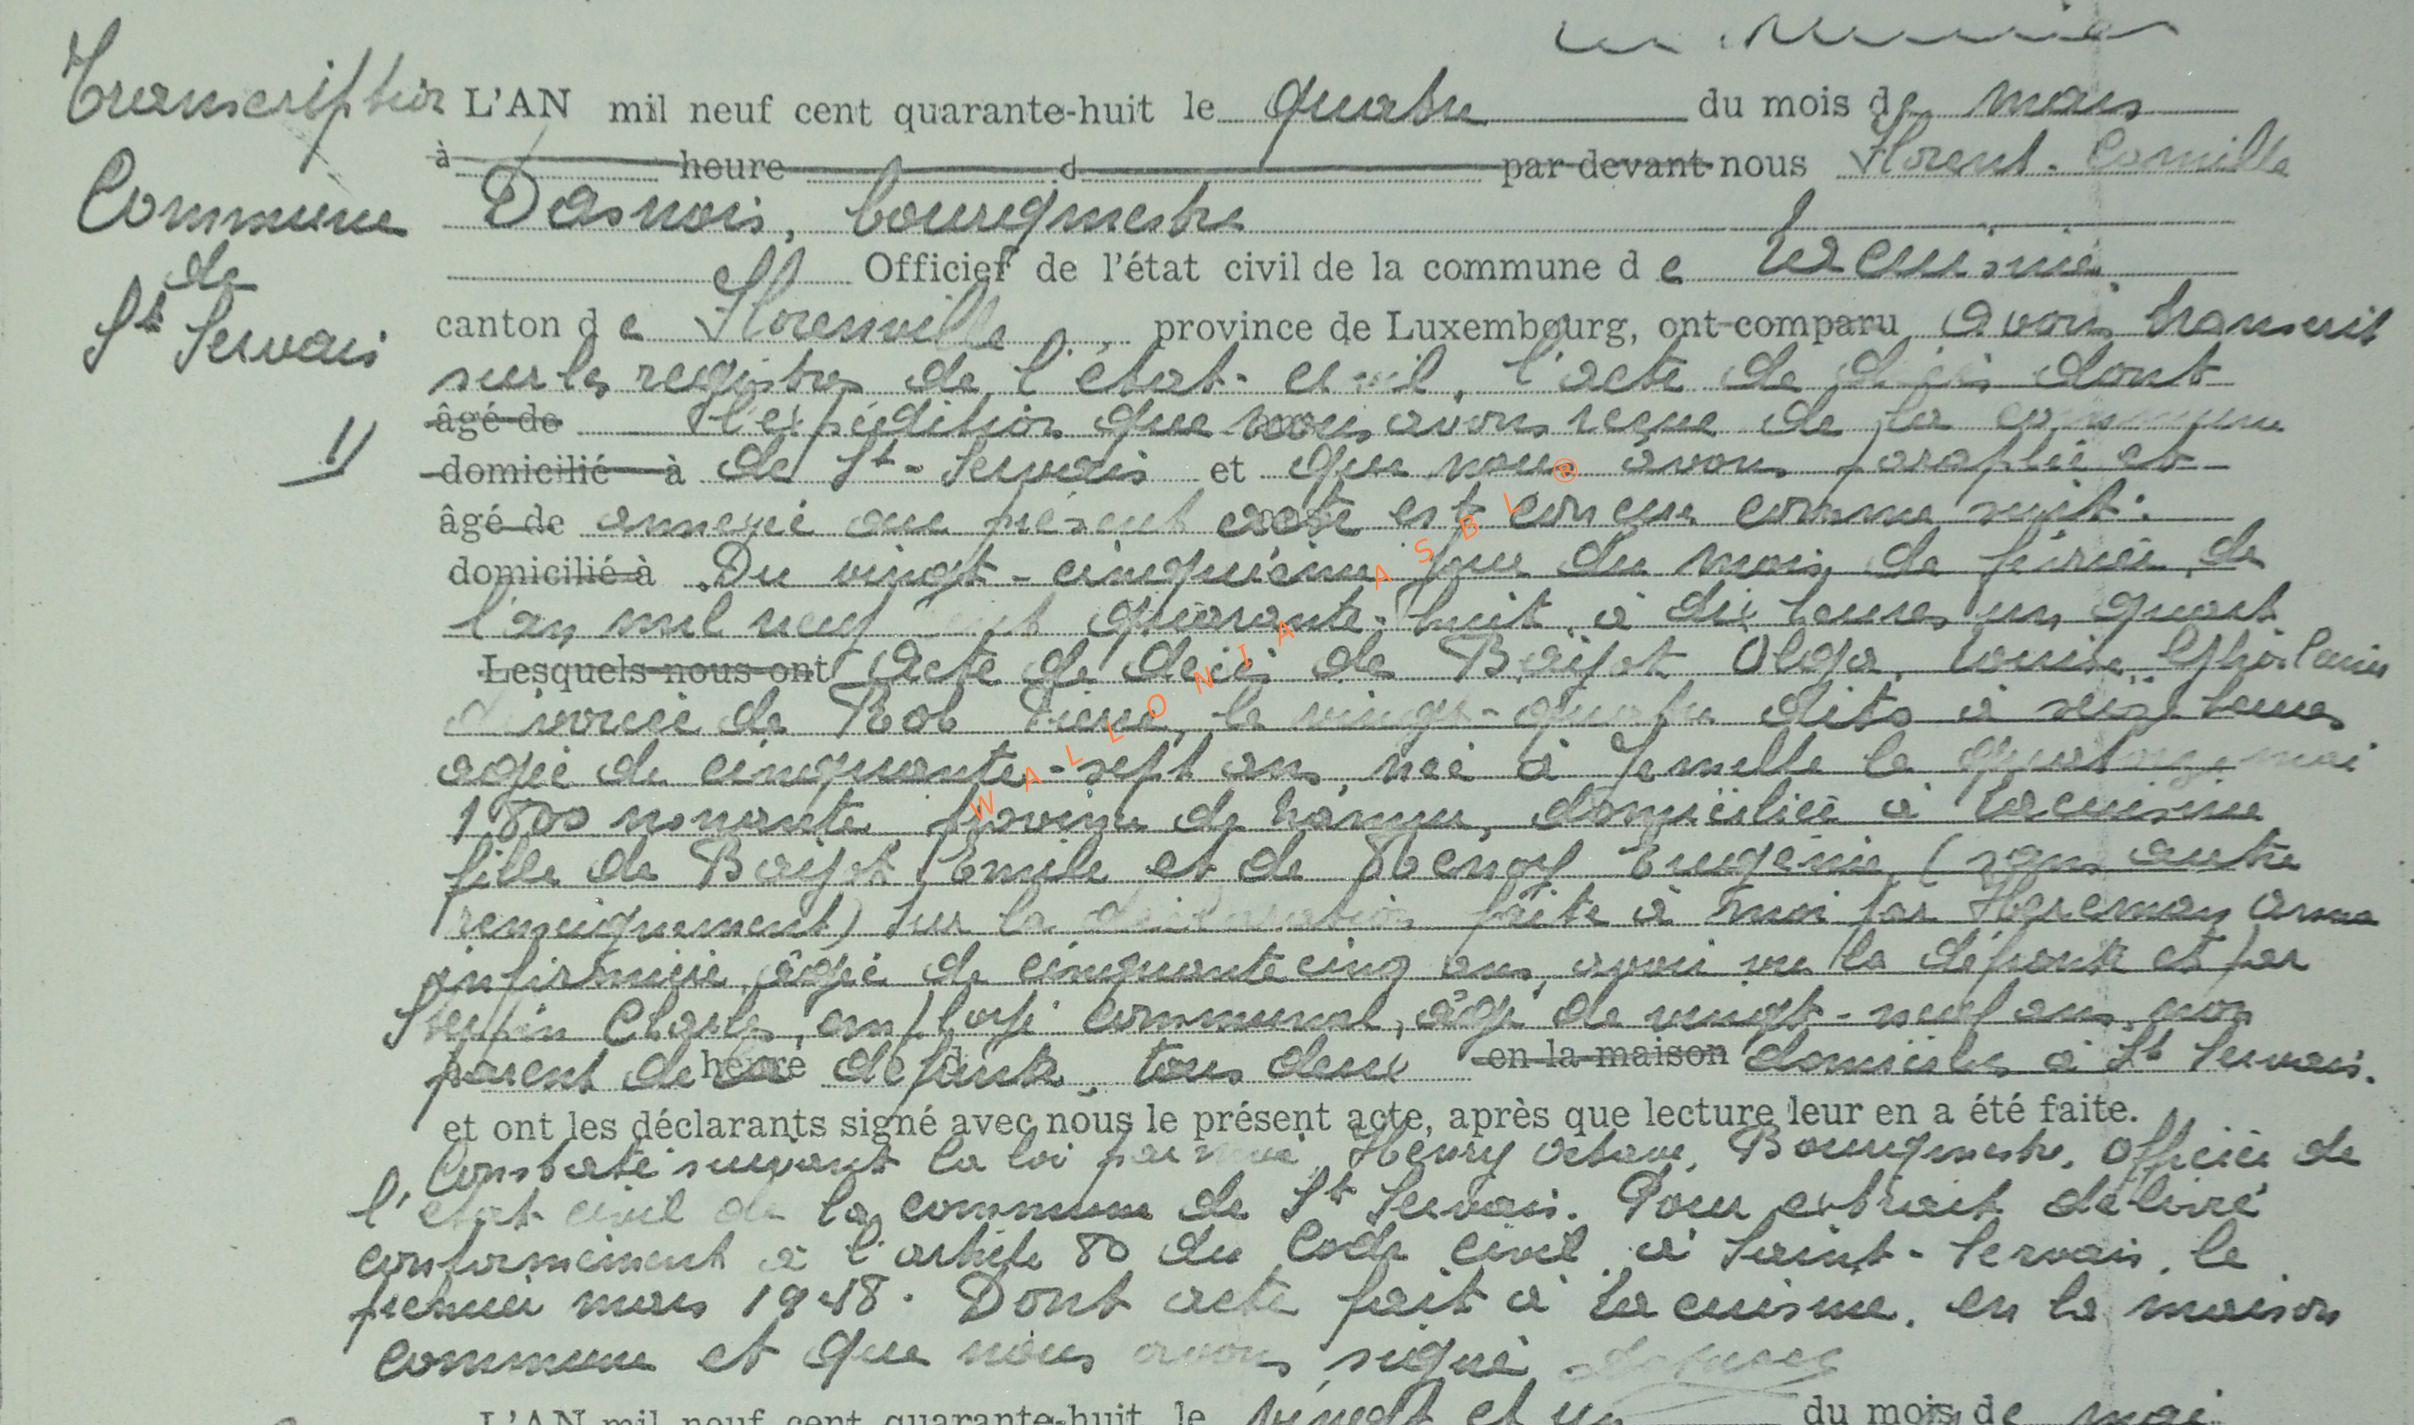 Transcription
Commune
de
St Servais
11
L'AN mil neuf cent quarante-huit le quatre du mois de mars
à heure d par devant nous Florent-Camille
Dasnois, bourgmestre
Officier de l'état civil de la commune de Lacuisine
canton de Florenville, province de Luxembourg, ont comparu avons transcrit
sur les registres de l'état-civil, l'acte de décès dont
âgé de l'expédition que nous avons reçue de la commune
domicilié à de St-Servais et que nous avons paraphée et
âgé de annexée au présent acte est conçue comme suit :
domicilié à "Du vingt-cinquième jour du mois de février, de
l'an mil neuf cent quarante-huit, à dix heures un quart
Lesquels nous ont Acte de décès de Baijot Olga, Louise, Ghislaine
divorcée de Rob Pierre, le vingt-quatre dito à seize heures
agée de cinquante-sept ans, née à Jemelle le quatorze mai
1800 nonante, province de Namur, domiciliée à Lacuisine
fille de Baijot Emile et de Henoy Eugénie, (sans autre
renseignement) Sur la déclaration faite à moi par Hereman Anna
infirmière, âgée de cinquante cinq ans, avoir vu la défunte et par
Steffin Charles, employé communal, âgé de vingt-neuf ans, non
parent de la heure défunte, tous deux en la maison domiciliés à St Servais.
et ont les déclarants signé avec nous le présent acte, après que lecture leur en a été faite.
Constaté suivant la loi par moi, Henry Octave, Bourgmestre, officier de
l'état civil de la commune de St Servais. Pour extrait délivré
conformément à l'article 80 du Code Civil, à Saint-Servais, le
premier mars 1948. Dont acte fait à Lacuisine, en la maison
commune et que nous avons signé Dasnois
L'AN mil neuf cent quarante-huit le vingt et un du mois de mai
WALLONIA ASBL ®